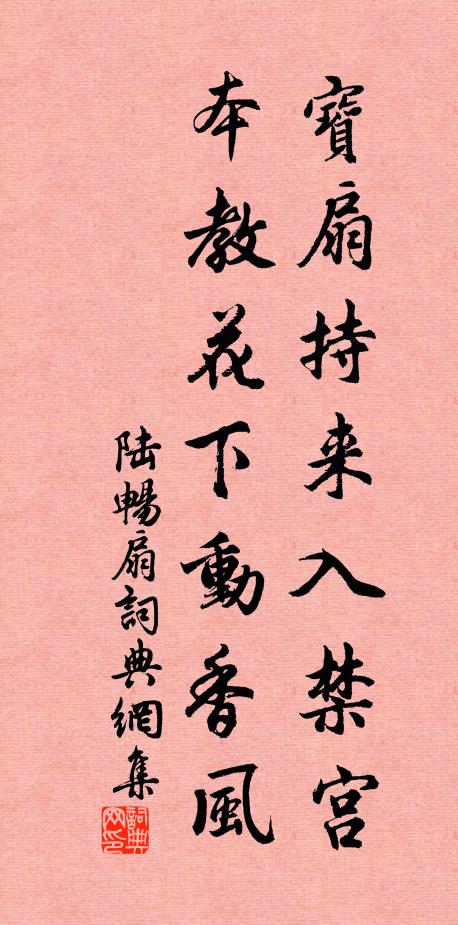 寶扇持来入禁宫
本教花下動香風
陆暢扇詞典網集
詞典网印